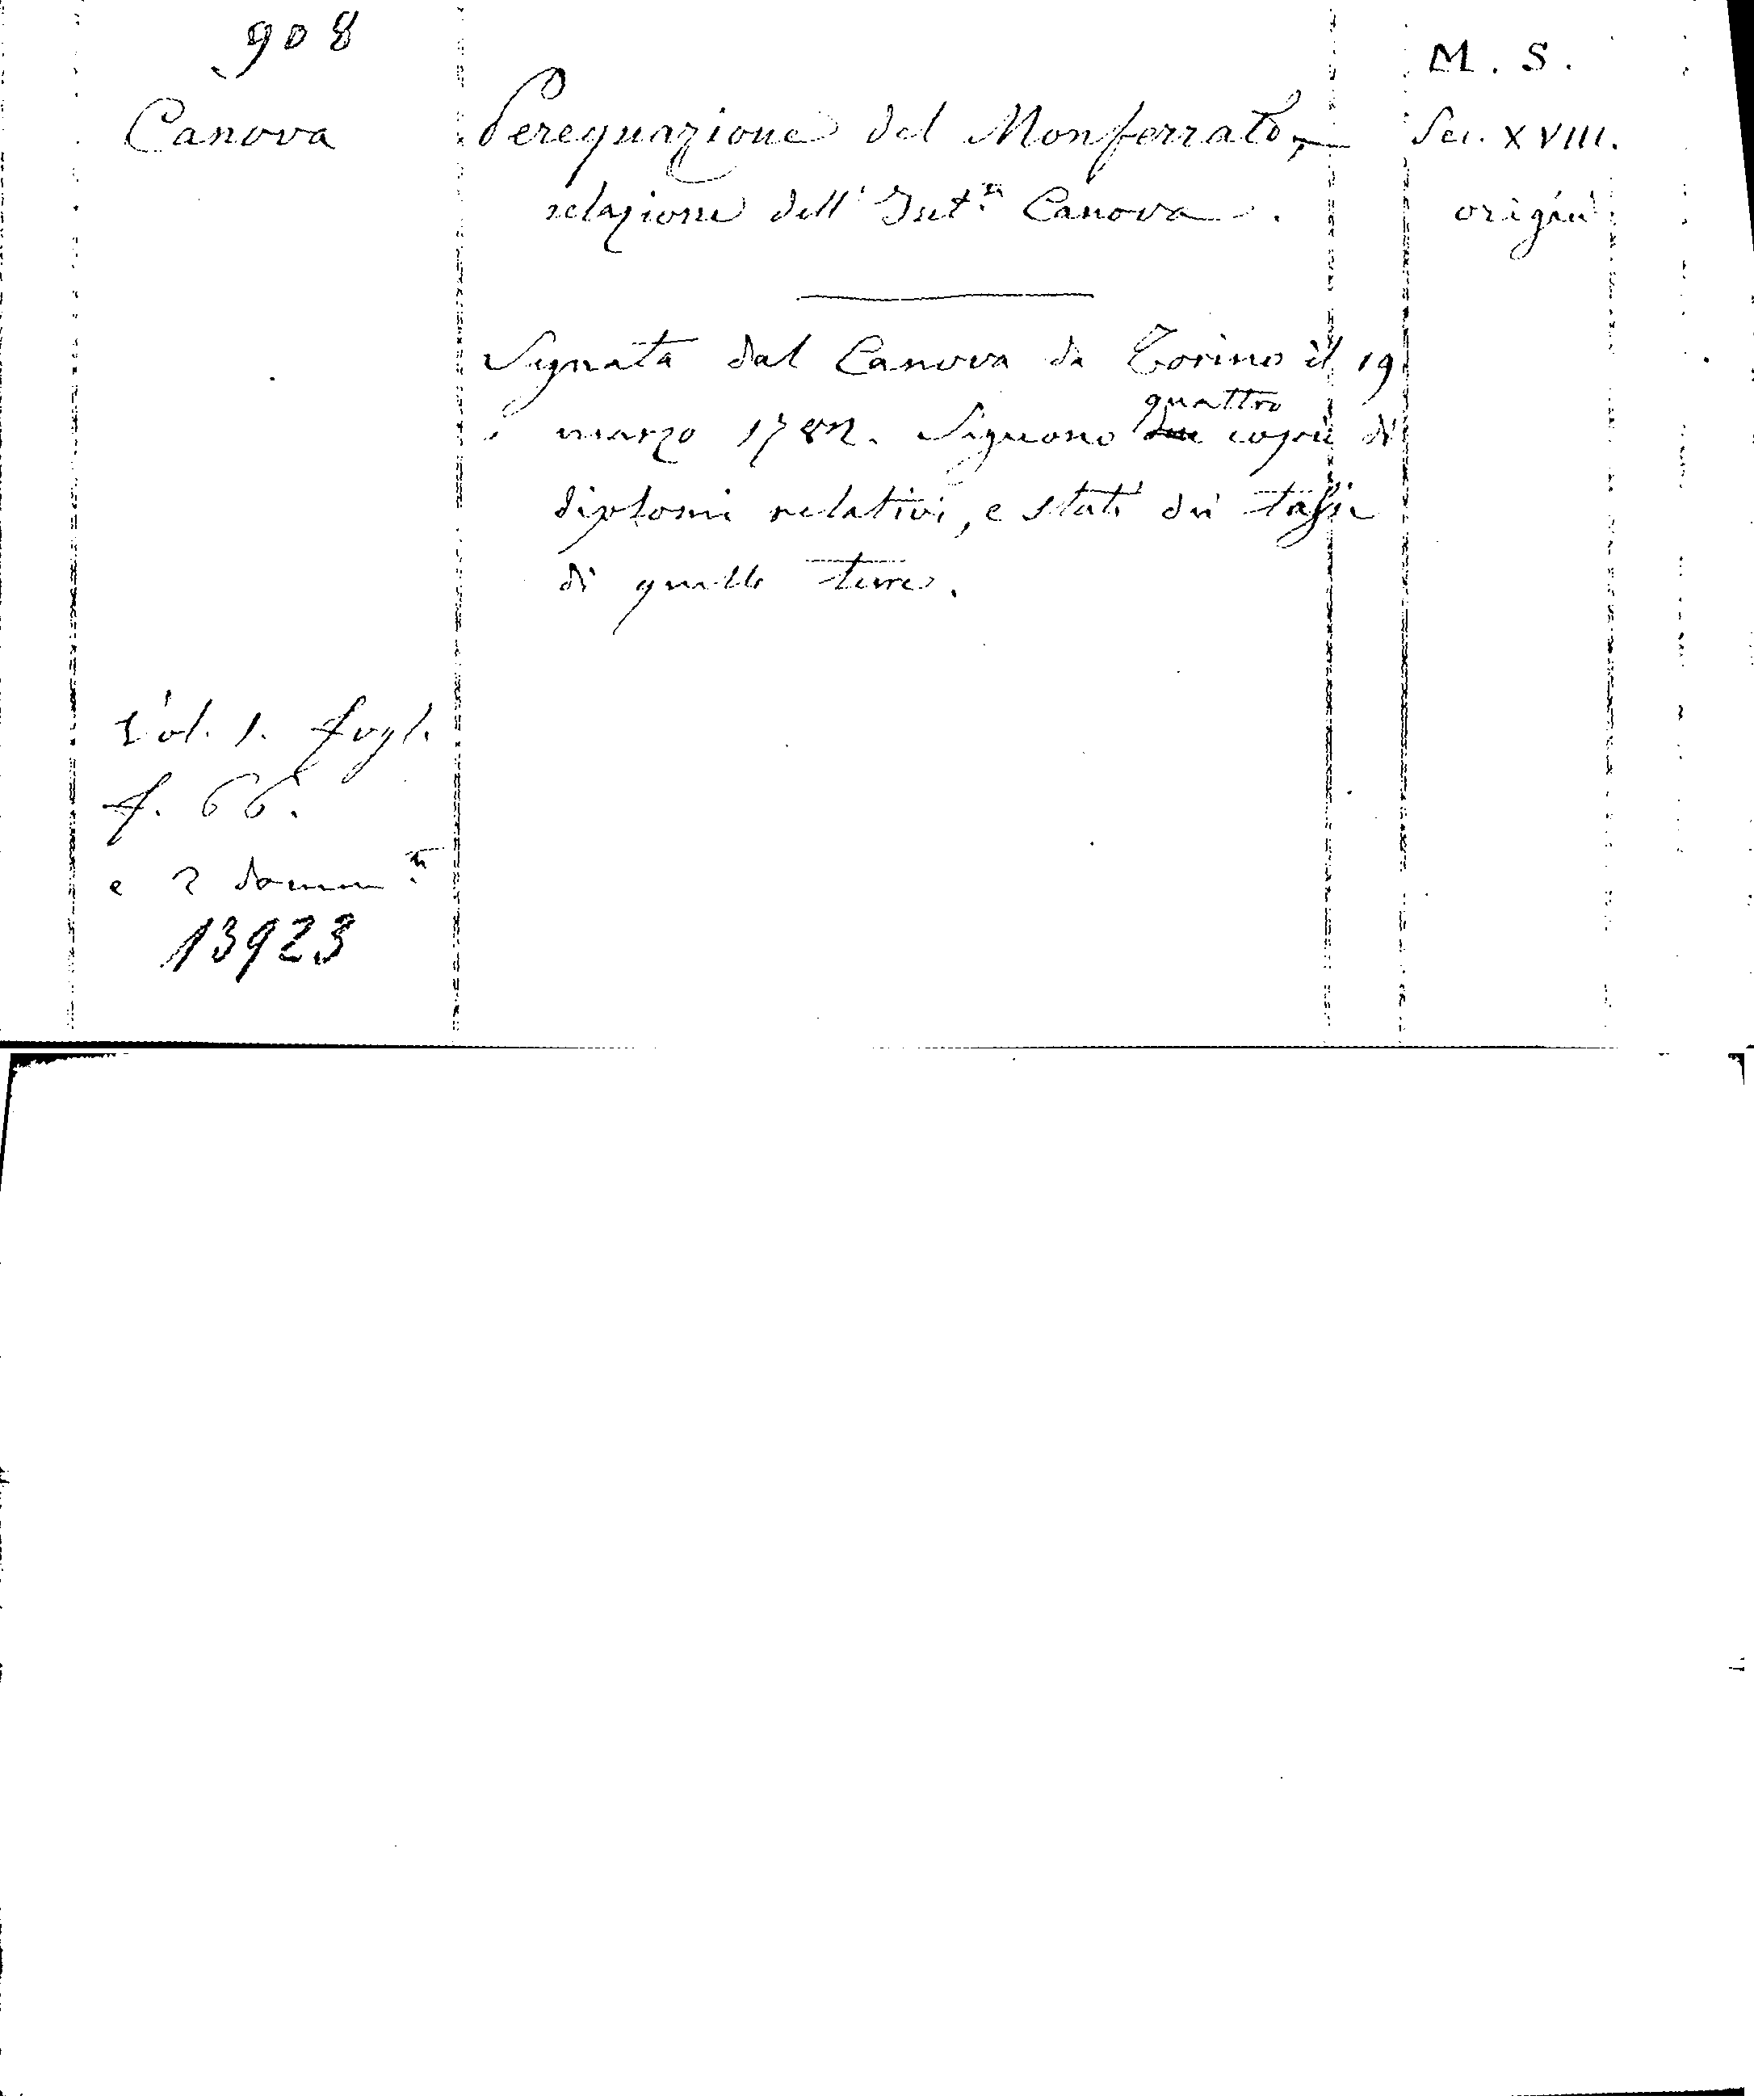 908
M. S.
Canova
Perequazione del Monferrato,
Sec. XVIII.
relazione dell' Int.e Canova.
origin.
Segnata dal Canova da Torino il 19
marzo 1782. Seguono quattro copie di
diplomi relativi, e stati dei tassi
di quelle terre.
Vol. 1. fogl.
f. 66.
e 2 docum.ti
13923